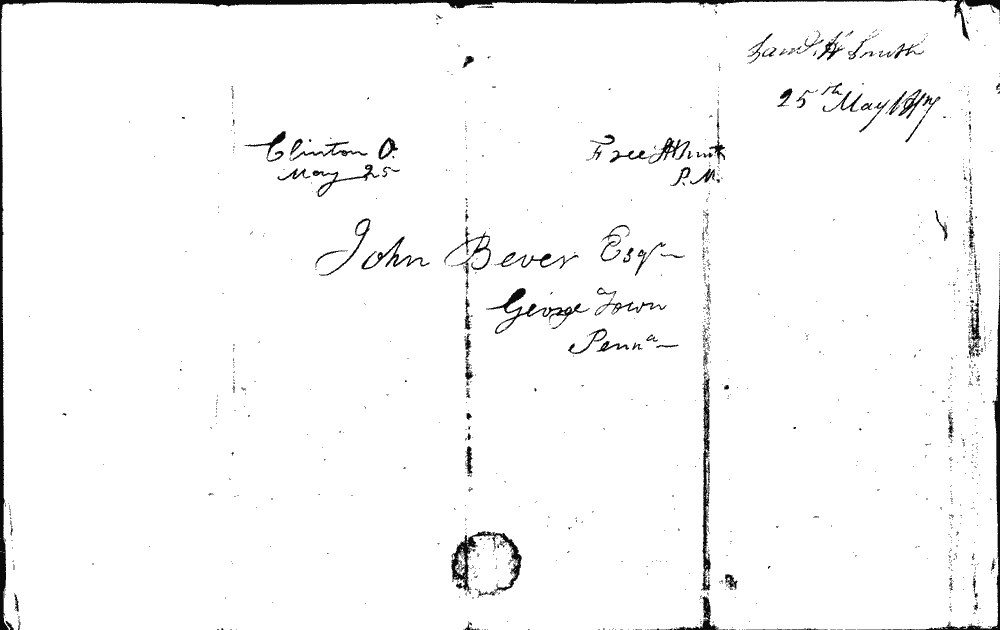 Saml. H Smith
25th May
Clinton O.
May 25
Free
P.M.
John Bever Esqr
George Town
Penna